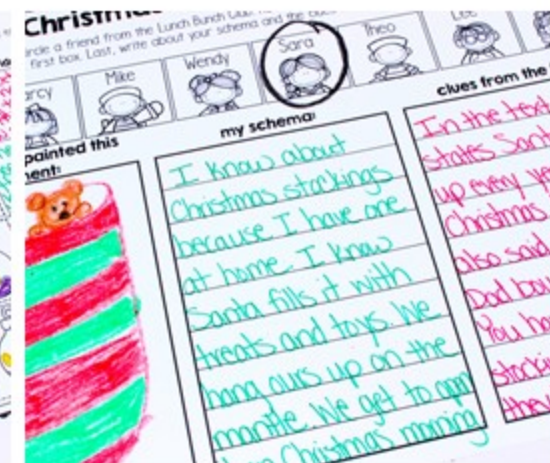 Christmas
circle a friend from the Lunch Bunch
first box. Last, write about your schema and the
Mike
Wendy
Sara
Theo
Lee
painted this
my schema:
I know about
Christmas stockings
because I have one
at home. I know
Santa fills it with
treats and toys. We
hang ours up on the
mantle. We get to open
Christmas morning
clues from the
In the text
states Sant
up every ye
Christmas
also said
Dad bou
You ha
stockin
they